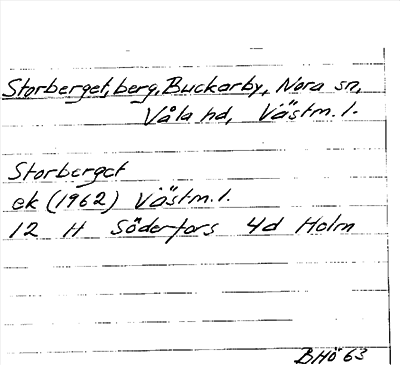 Storberget, berg, Buckarby, Nora sn,
Våla hd, Västm. l.
Storberget
ek (1962) Västm. l.
12 H Söderfors 4d Holm
BHö 63